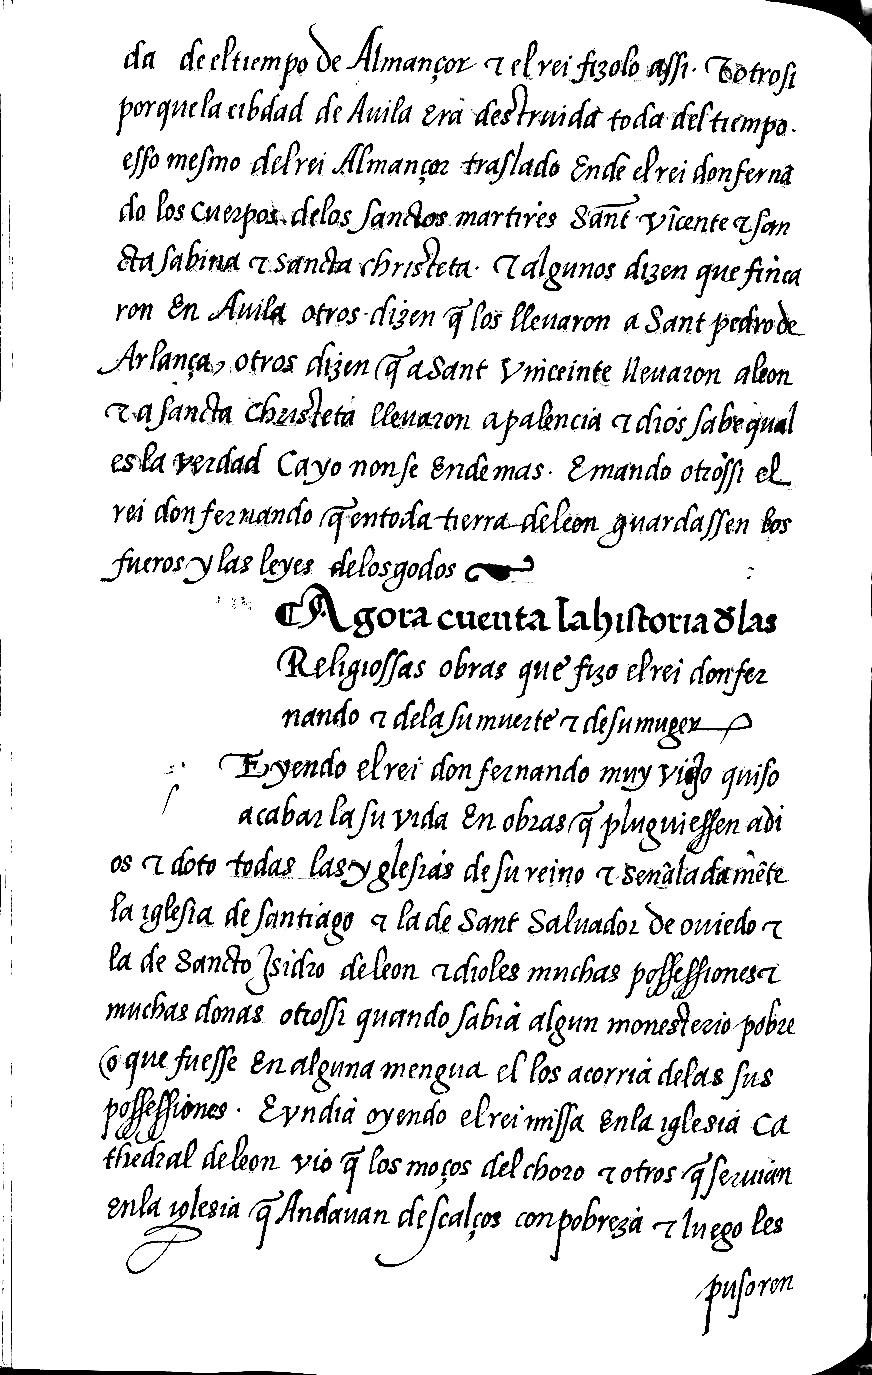 da de el tiempo de Almançor τ el rei fizolo assi. τ otrosi
porque la cibdad de Auila era destruida toda del tiempo.
esso mesmo del rei Almançor traslado ende el rei don fernã
do los cuerpos de los sanctos martires Sant̃ vicente τ san
cta sabina τ sancta christeta. τ algunos dizen que finca
ron en Auila otros dizen q̃ los lleuaron a Sant pedro de
Arlança, otros dizen q̃ a Sant vinceinte lleuaron a leon
τ a sancta christeta lleuaron a palencia τ dios sabe qual
es la verdad Ca yo non se ende mas. E mando otrossi el
rei don fernando q̃ en toda tierra de leon guardassen los
fueros y las leyes de los godos
¶ Agora cuenta la historia d̃ las
Religiossas obras que fizo el rei don fer
nando τ de la su muerte τ de su muger
Eyendo el rei don fernando muy viejo quiso
acabar la su vida en obras q̃ pluguiessen a di
os τ doto todas las yglesias de su reino τ señaladamẽte
la iglesia de santiago τ la de Sant Saluador de ouiedo τ
la de Sancto Isidro de leon τ dioles muchas possessiones τ
muchas donas otrossi quando sabia algun monesterio pobre
o que fuesse en alguna mengua el los acorria de las sus
possessiones. E vn dia oyendo el rei missa en la iglesia Ca
thedral de leon vio q̃ los moços del choro τ otros q̃ seruian
en la iglesia q̃ Andauan descalços con pobreza τ luego les
pusoren